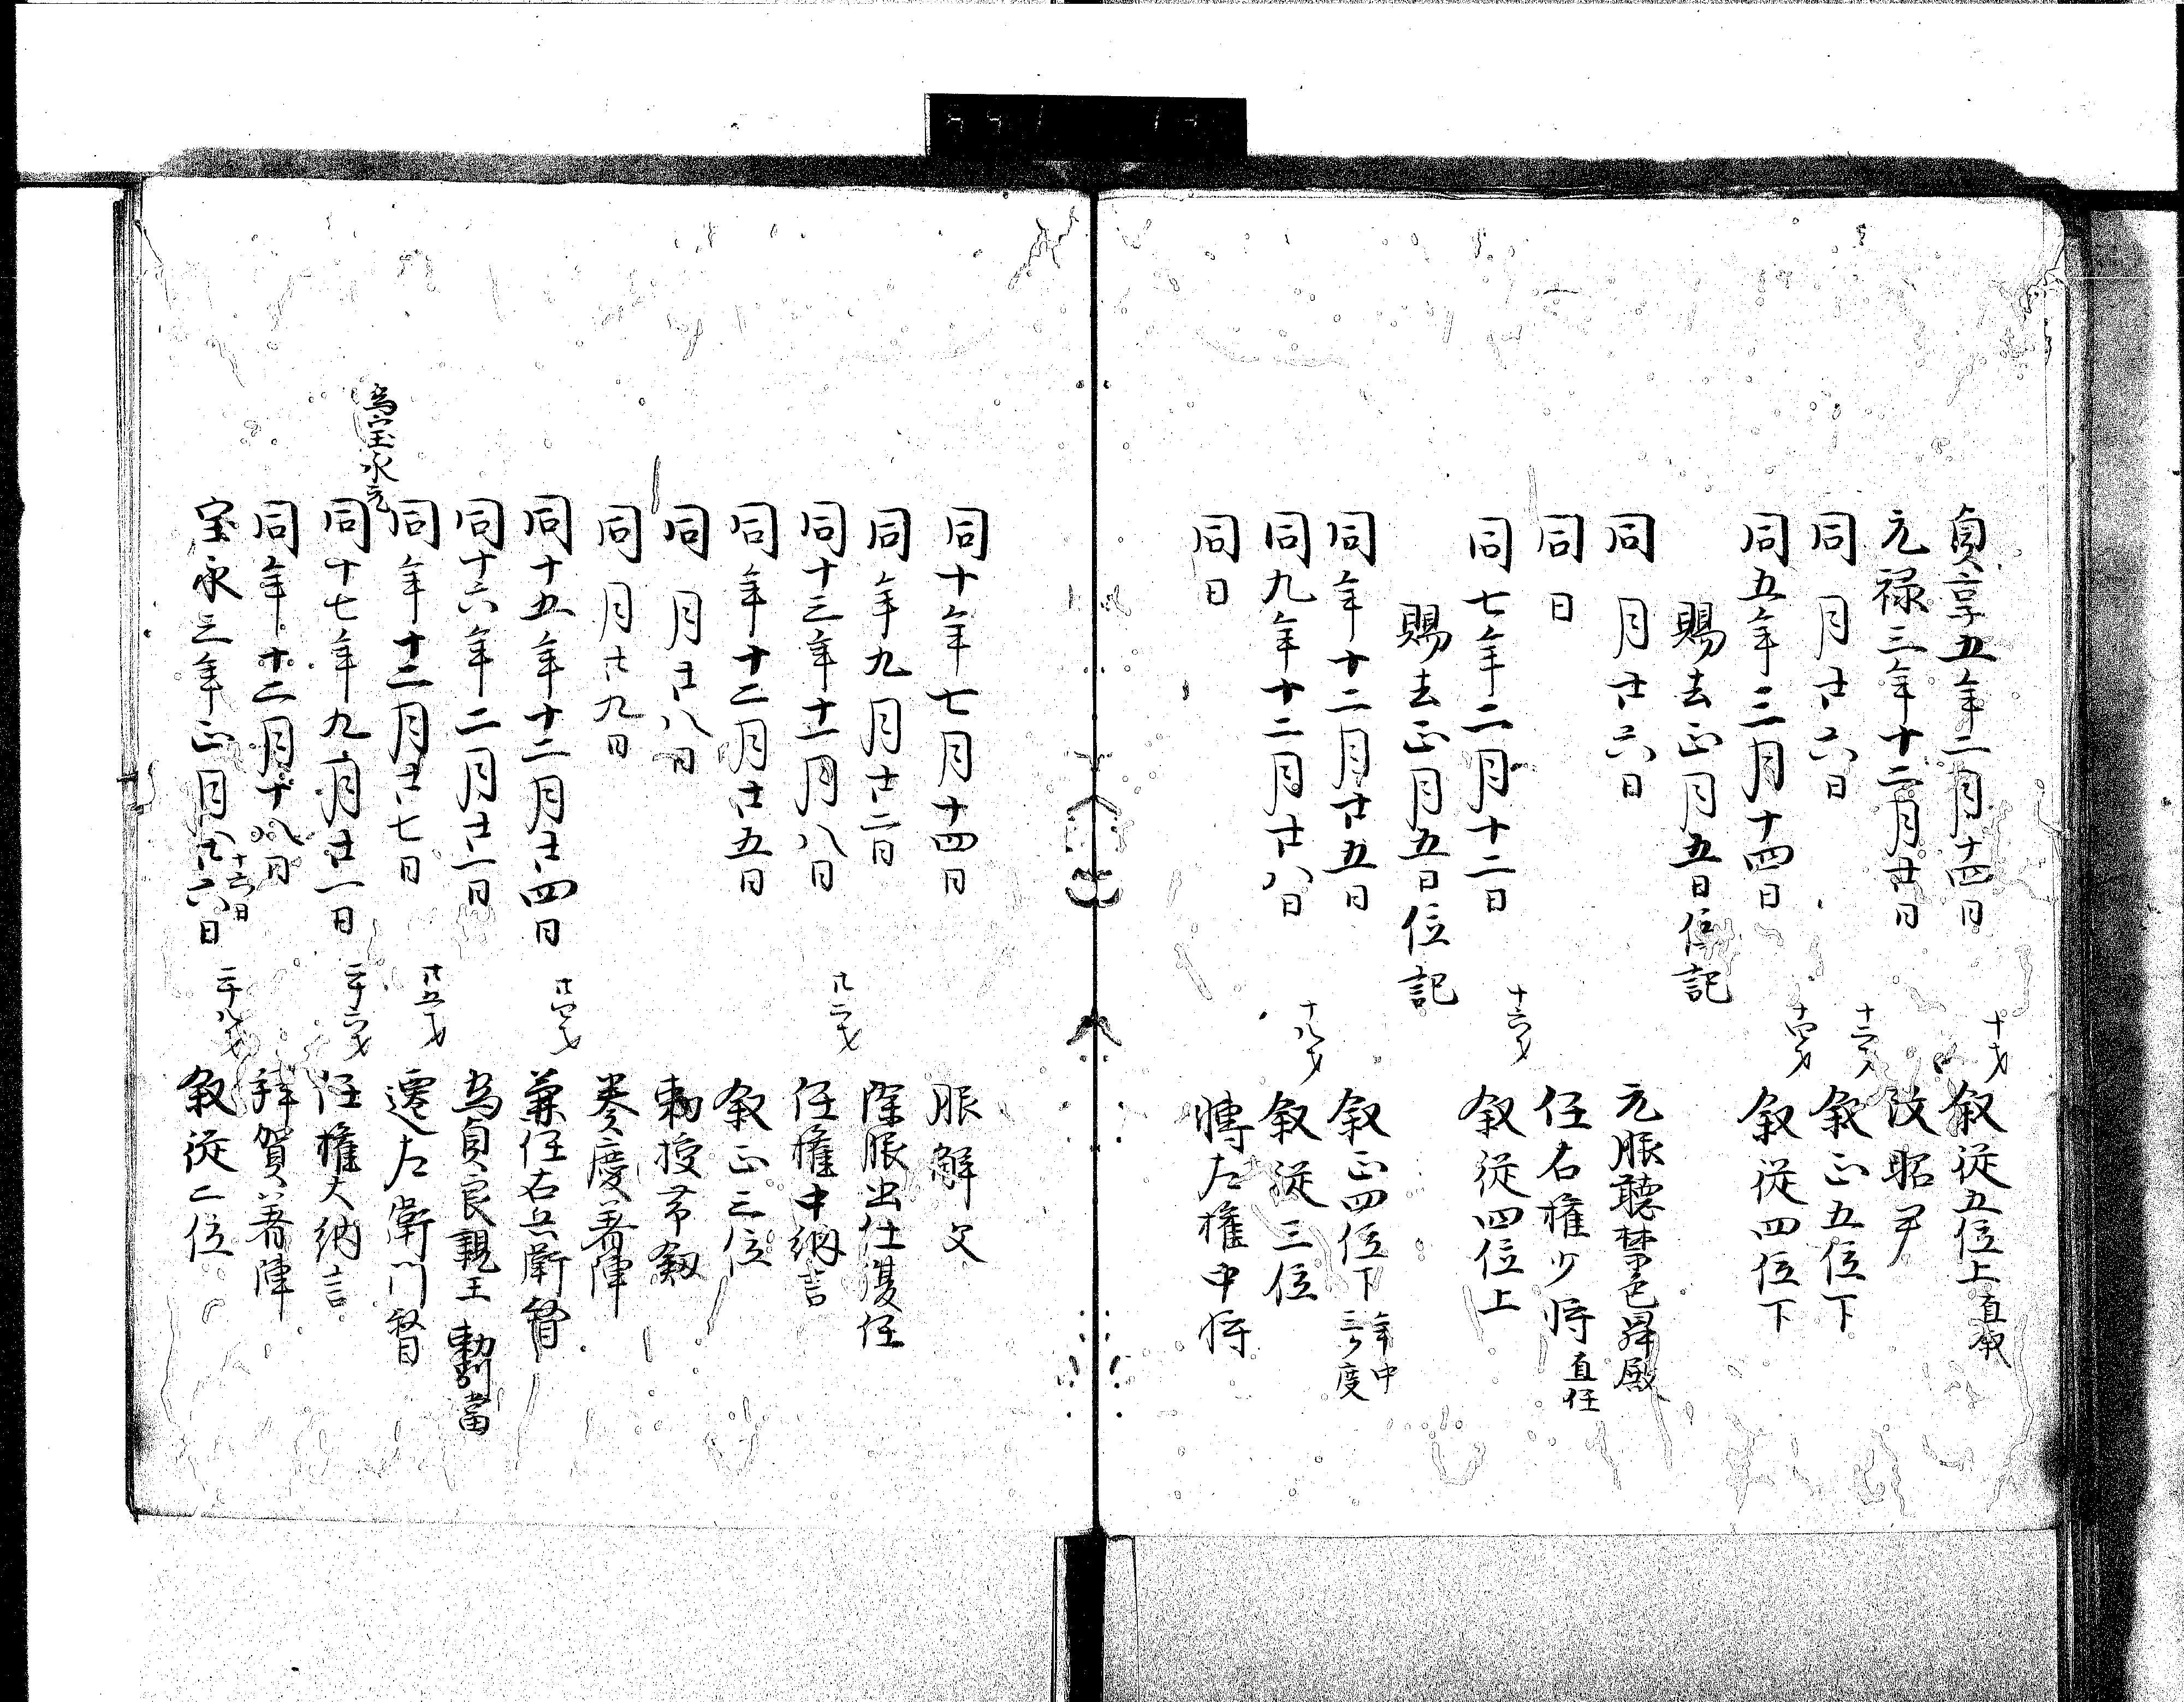 貞享五年二月十四日 十才 叙従五位上 直叙
元禄三年十二月廿日 改昭尹
同月廿六日 十二才 叙正五位下
同五年三月十四日 十四才 叙従四位下
賜去正月五日位記
同月廿六日 元服聴禁色昇殿
同日 任右権少将 直任
同七年二月十二日 十六才 叙従四位上
賜去正月五日位記
同年十二月廿五日 叙正四位下 年中三ケ度
同九年十二月廿八日 十八才 叙従三位
同日 転左権中将
同十年七月十四日 服解父
同年九月廿二日 除服出仕復任
同十三年十一月八日 廿二才 任権中納言
同年十二月廿五日 叙正三位
同月廿八日 勅授帯剱
同月廿九日 奏慶着陣
同十五年十二月廿四日 廿四才 兼任右兵衛督
同十六年二月廿一日 為貞良親王勅別當
同年十二月廿七日 廿五才 遷左衛門督
為宝永元
同十七年九月廿一日 二十六才 任権大納言
同年十二月十八日 拝賀着陣
宝永三年正月廿六日 十六日 二十八才 叙従二位